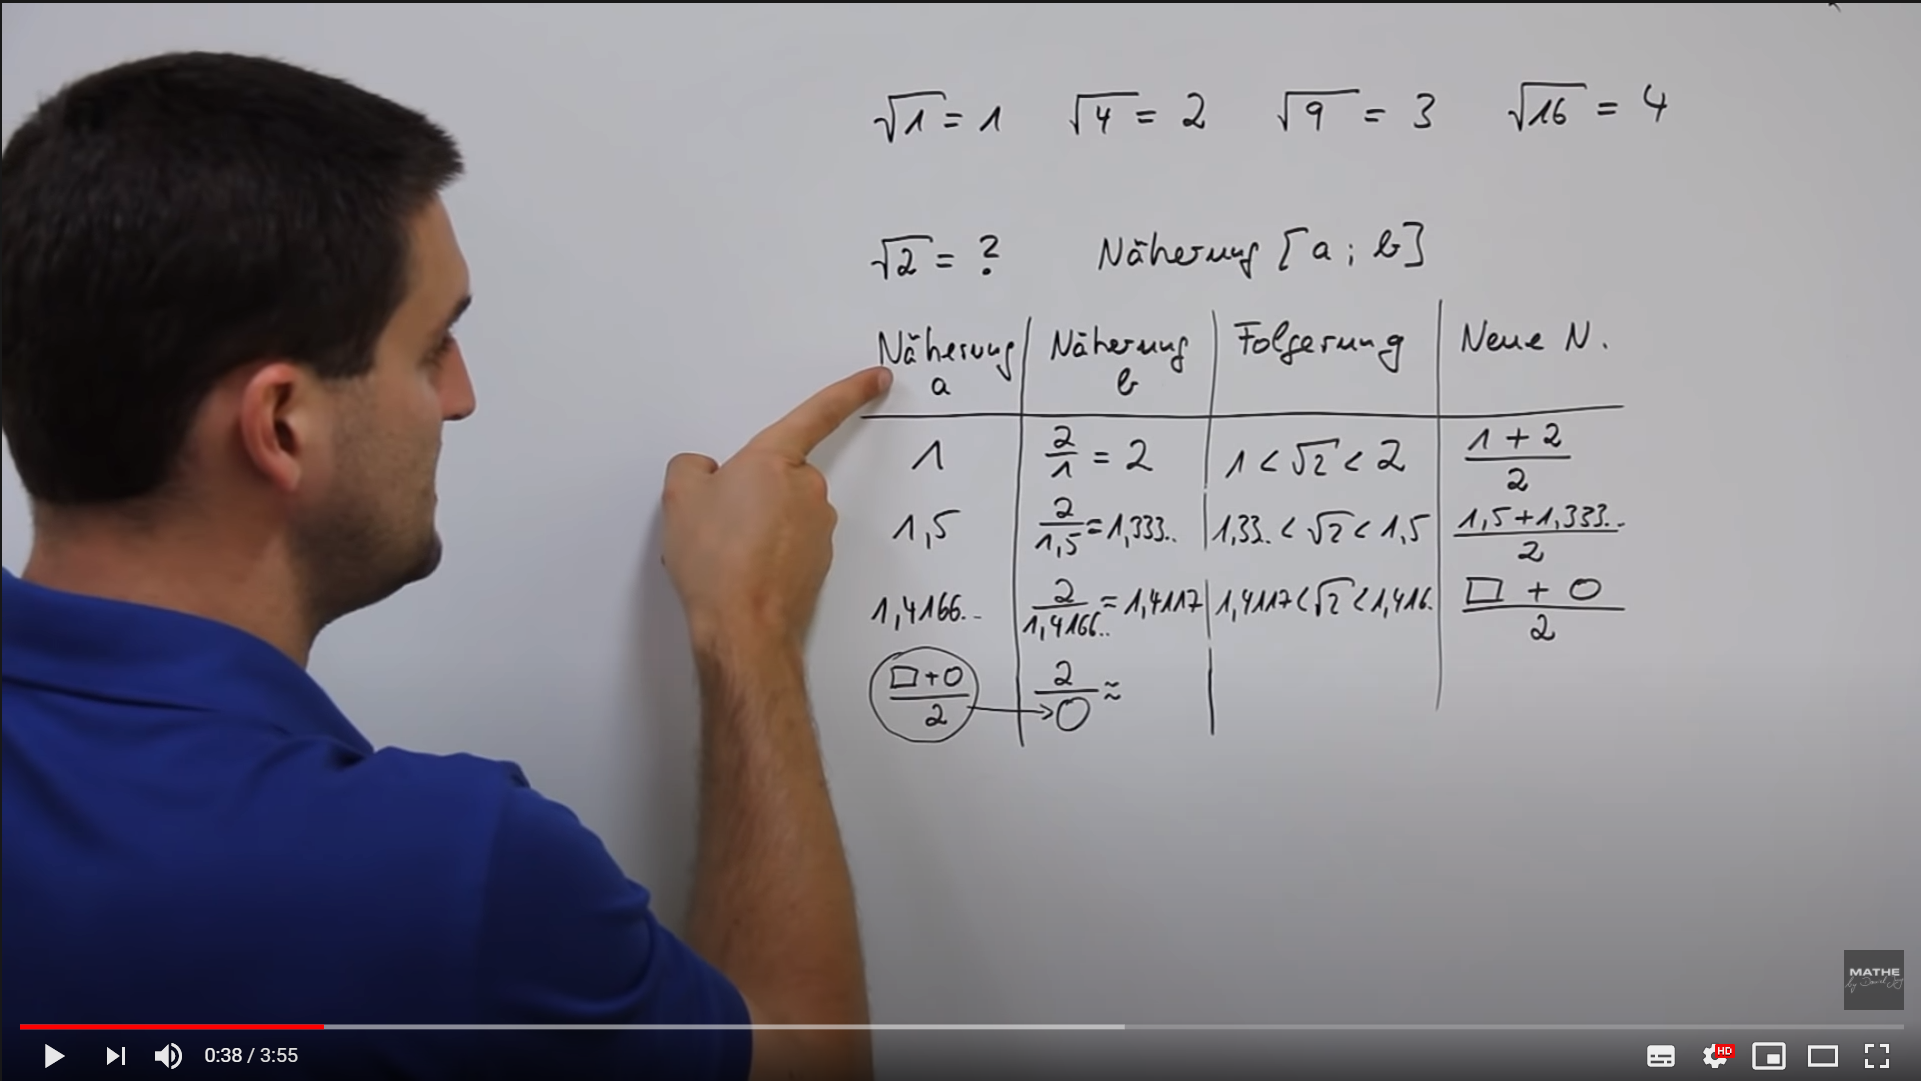 √1 = 1 √4 = 2 √9 = 3 √16 = 4
√2 = ? Näherung [a ; b]
Näherung a | Näherung b | Folgerung | Neue N.
1 | 2/1 = 2 | 1 < √2 < 2 | (1 + 2)/2
1,5 | 2/1,5 = 1,333.. | 1,33. < √2 < 1,5 | (1,5+1,333..)/2
1,4166.. | 2/1,4166.. = 1,4117 | 1,4117 < √2 < 1,416. | (□ + ○)/2
(□+○)/2 → 2/○ ≈
MATHE
0:38 / 3:55
HD